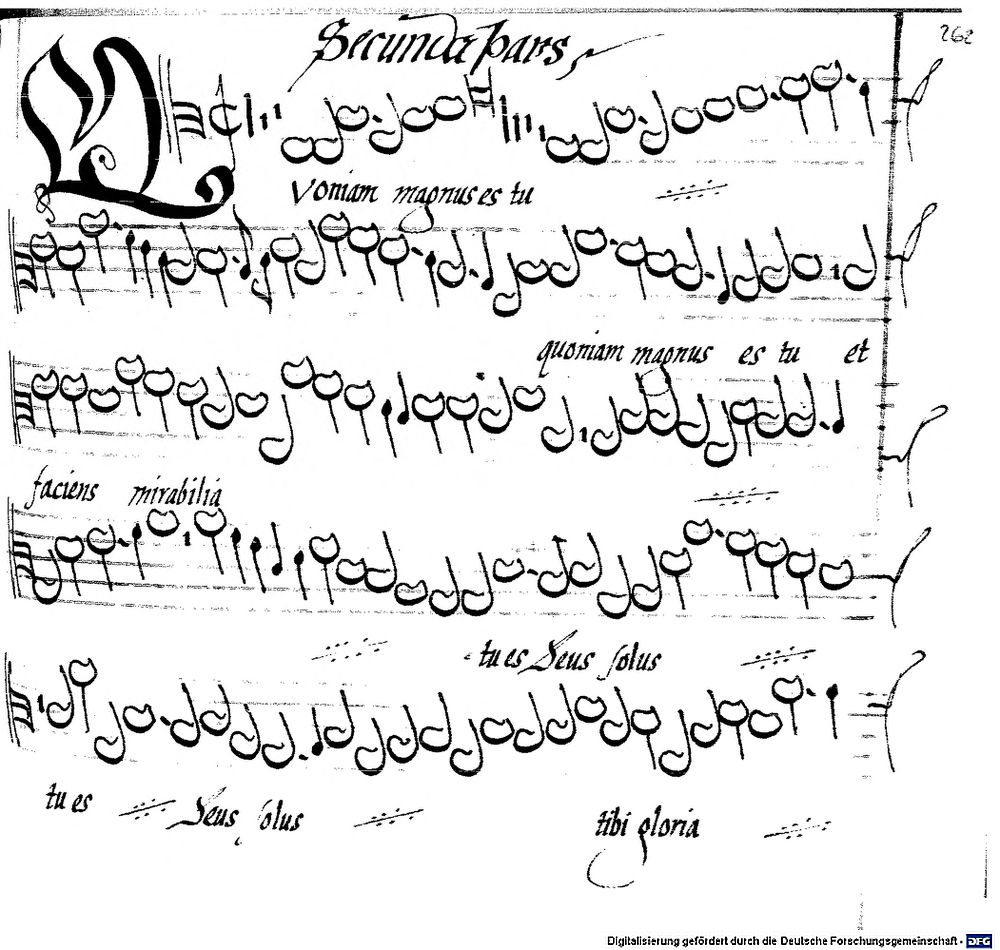 Secunda pars
262
Quoniam magnus es tu
quoniam magnus es tu et
faciens mirabilia
tu es Deus solus
tu es Deus solus tibi gloria
Digitalisierung gefördert durch die Deutsche Forschungsgemeinschaft - DFG